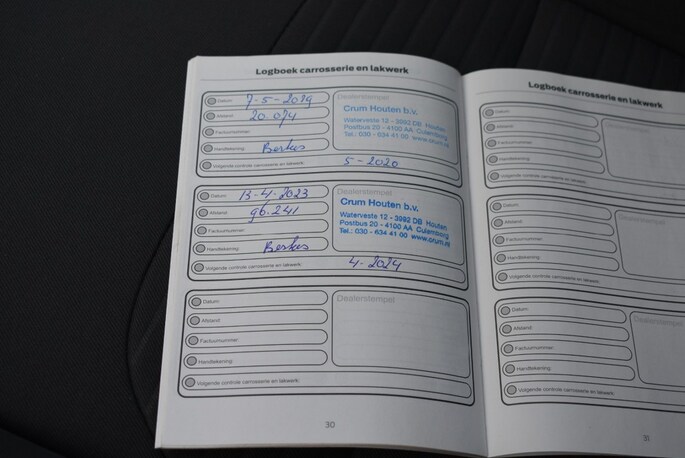 Logboek carrosserie en lakwerk
Datum: 7-5-2019
Afstand: 20.074
Factuurnummer:
Handtekening: Berkes
Volgende controle carrosserie en lakwerk: 5-2020
Dealerstempel
Crum Houten b.v.
Waterveste 12 - 3992 DB Houten
Postbus 20 - 4100 AA Culemborg
Tel.: 030 - 634 41 00 www.crum.nl
Datum: 13-4-2023
Afstand: 96.241
Factuurnummer:
Handtekening: Berkes
Volgende controle carrosserie en lakwerk: 4-2024
Dealerstempel
Crum Houten b.v.
Waterveste 12 - 3992 DB Houten
Postbus 20 - 4100 AA Culemborg
Tel.: 030 - 634 41 00 www.crum.nl
Datum:
Afstand:
Factuurnummer:
Handtekening:
Volgende controle carrosserie en lakwerk:
Dealerstempel
30
Logboek carrosserie en lakwerk
Datum:
Afstand:
Factuurnummer:
Handtekening:
Volgende controle carrosserie en lakwerk:
Dealerstempel
Datum:
Afstand:
Factuurnummer:
Handtekening:
Volgende controle carrosserie en lakwerk:
Dealerstempel
Datum:
Afstand:
Factuurnummer:
Handtekening:
Volgende controle carrosserie en lakwerk:
Dealerstempel
31